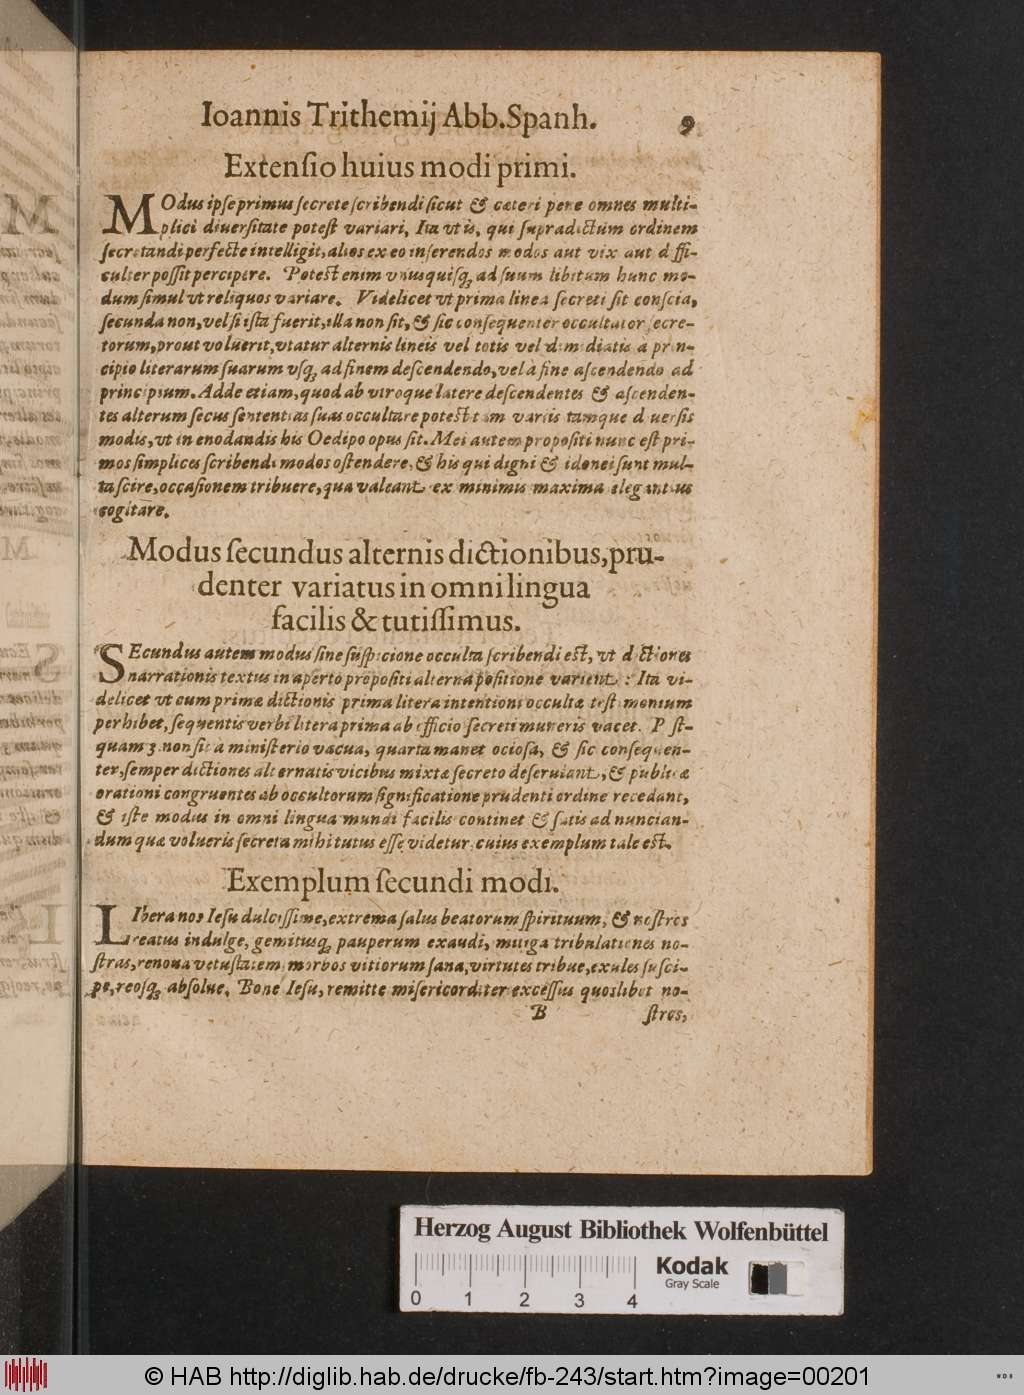 Ioannis Trithemij Abb. Spanh. 9
Extenſio huius modi primi.
MOdus ipſe primus ſecrete ſcribendi ſicut & cæteri pene omnes multi-
plici diuerſitate poteſt variari, Ita vt is, qui ſupradictum ordinem
ſecretandi perfecte intelligit, alios ex eo inſerendos modos aut vix aut difffi-
culter poſſit percipere. Poteſt enim vnusquiſq; ad ſuum libitum hunc mo-
dum ſimul vt reliquos variare. Videlicet vt prima linea ſecreti ſit conſcia,
ſecunda non, vel ſi iſta fuerit, illa non ſit, & ſic conſequenter occultator ſecre-
torum, prout voluerit, vtatur alternis lineis vel totis vel dimidiatis a prin-
cipio literarum ſuarum vſq; ad finem deſcendendo, vel à fine aſcendendo ad
principium. Adde etiam, quod ab vtroque latere deſcendentes & aſcenden-
tes alterum ſecus ſententias ſuas occultare poteſt tam variis tamque diuerſis
modis, vt in enodandis his Oedipo opus ſit. Mei autem propoſiti nunc eſt pri-
mos ſimplices ſcribendi modos oſtendere, & his qui digni & idonei ſunt mul-
ta ſcire, occaſionem tribuere, qua valeant ex minimis maxima elegantius
cogitare.
Modus ſecundus alternis dictionibus, pru-
denter variatus in omni lingua
facilis & tutiſſimus.
SEcundus autem modus ſine ſuſpicione occulta ſcribendi eſt, vt dictiones
narrationis textus in aperto propoſiti alterna poſitione varient: Ita vi-
delicet vt cum primæ dictionis prima litera intentioni occultæ teſtimonium
perhibet, ſequentis verbi litera prima ab officio ſecreti muneris vacet. Poſt-
quam 3. non ſit a miniſterio vacua, quarta manet ocioſa, & ſic conſequen-
ter, ſemper dictiones alternatis vicibus mixtæ ſecreto deſeruiant, & publicæ
orationi congruentes ab occultorum ſignificatione prudenti ordine recedant,
& iſte modus in omni lingua mundi facilis continet & ſatis ad nuncian-
dum quæ volueris ſecreta mihi tutus eſſe videtur, cuius exemplum tale eſt.
Exemplum ſecundi modi.
LIbera nos Ieſu dulciſſime, extrema ſalus beatorum ſpirituum, & noſtros
reatus indulge, gemitusq; pauperum exaudi, mitiga tribulationes no-
ſtras, renoua vetuſtatem, morbos vitiorum ſana, virtutes tribue, exules ſuſci-
pe, reoſq; abſolue. Bone Ieſu, remitte miſericorditer exceſſus quoslibet no-
B ſtros,
Herzog August Bibliothek Wolfenbüttel
Kodak
Gray Scale
0 1 2 3 4
© HAB http://diglib.hab.de/drucke/fb-243/start.htm?image=00201